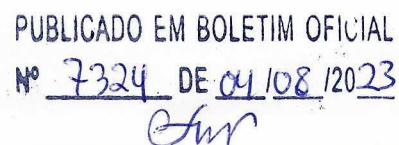 PUBLICADO EM BOLETIM OFICIAL
Nº 7324 DE 04/08/2023